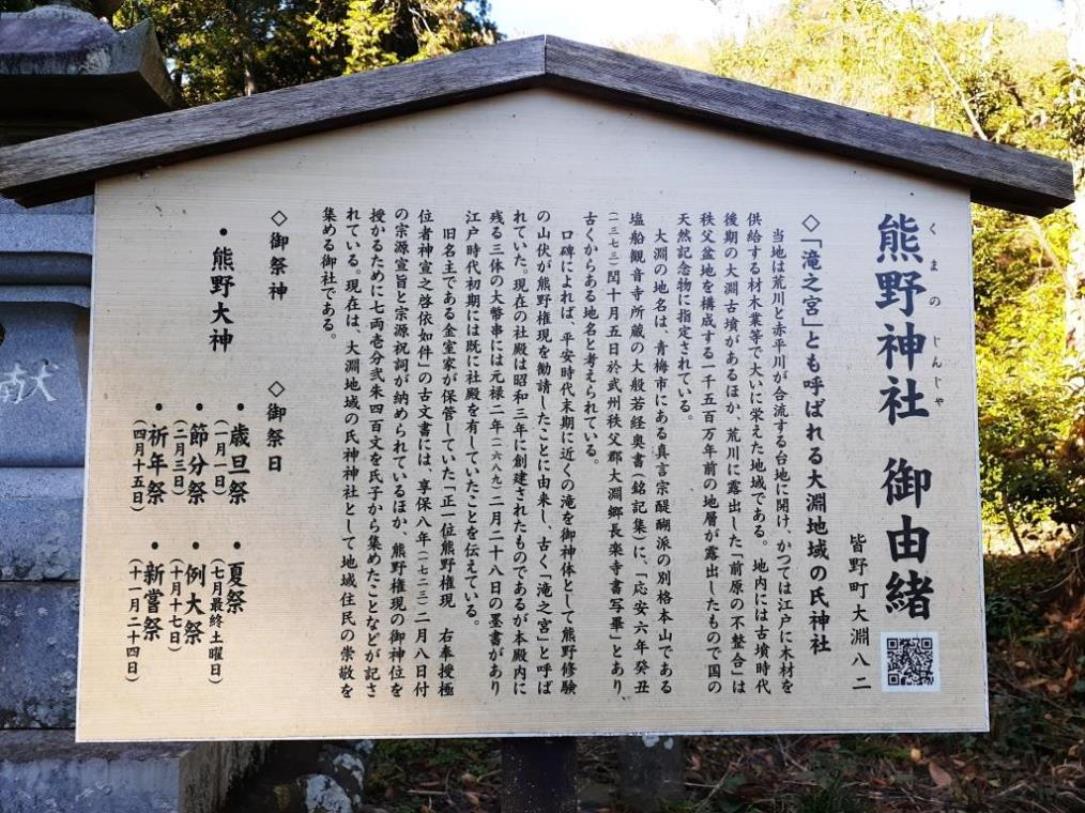 熊野神社 御由緒
くまの じんじゃ
皆野町大淵八二
◇「滝之宮」とも呼ばれる大淵地域の氏神社
当地は荒川と赤平川が合流する台地に開け、かつては江戸に木材を
供給する材木業等で大いに栄えた地域である。地内には古墳時代
後期の大淵古墳があるほか、荒川に露出した「前原の不整合」は
秩父盆地を構成する一千五百万年前の地層が露出したもので国の
天然記念物に指定されている。
大淵の地名は、青梅市にある真言宗醍醐派の別格本山である
塩船観音寺所蔵の大般若経奥書(銘記集)に、「応安六年癸丑
(一三七三)閏十月五日於武州秩父郡大淵郷長楽寺書写畢」とあり
古くからある地名と考えられている。
口碑によれば、平安時代末期に近くの滝を御神体として熊野修験
の山伏が熊野権現を勧請したことに由来し、古く「滝之宮」と呼ば
れていた。現在の社殿は昭和三年に創建されたものであるが本殿内に
残る三体の大幣串には元禄二年(一六八九)二月二十八日の墨書があり
江戸時代初期には既に社殿を有していたことを伝えている。
旧名主である金室家が保管していた「正一位熊野権現 右奉授極
位者神宣之啓依如件」の古文書には、享保八年(一七二三)二月八日付
の宗源宣旨と宗源祝詞が納められているほか、熊野権現の御神位を
授かるために七両壱分弐朱四百文を氏子から集めたことなどが記さ
れている。現在は、大淵地域の氏神神社として地域住民の崇敬を
集める御社である。
◇御祭神
・熊野大神
◇御祭日
・歳旦祭
(一月一日)
・節分祭
(二月三日)
・祈年祭
(四月十五日)
・夏祭
(七月最終土曜日)
・例大祭
(十月十七日)
・新嘗祭
(十一月二十四日)
献